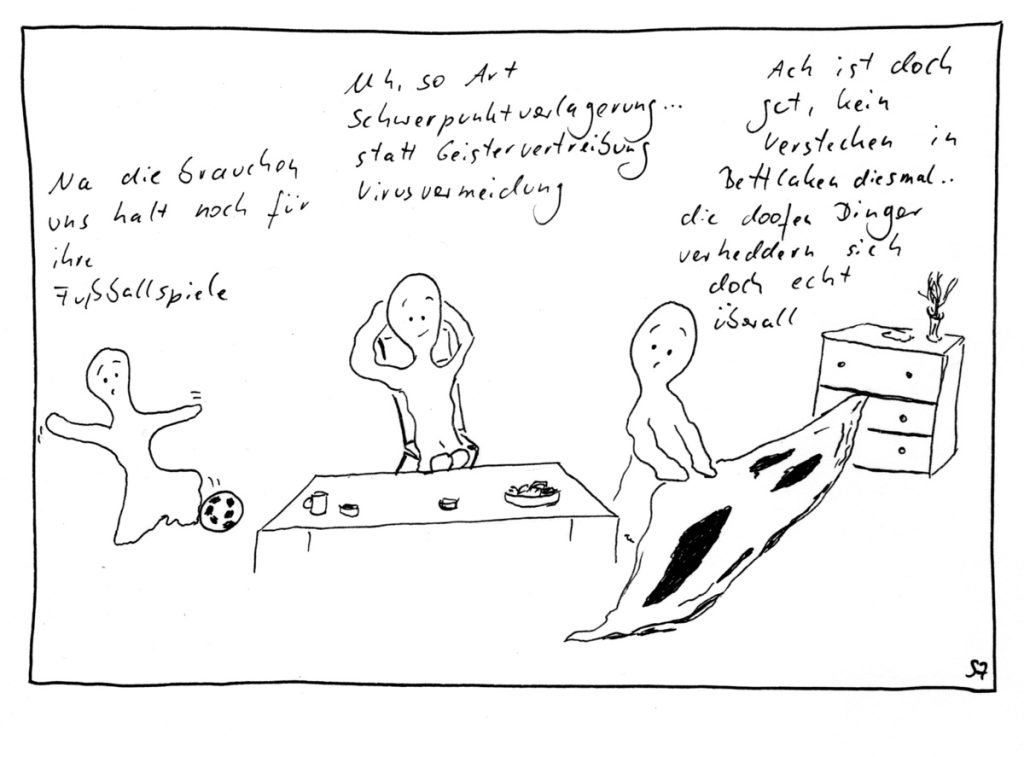 Na die brauchen
uns halt noch für
ihre
Fußballspiele
Uh, so Art
Schwerpunktverlagerung...
statt Geistervertreibung
Virusvermeidung
Ach ist doch
gut, kein
Verstecken in
Bettlaken diesmal..
die doofen Dinger
verheddern sich
doch echt
überall